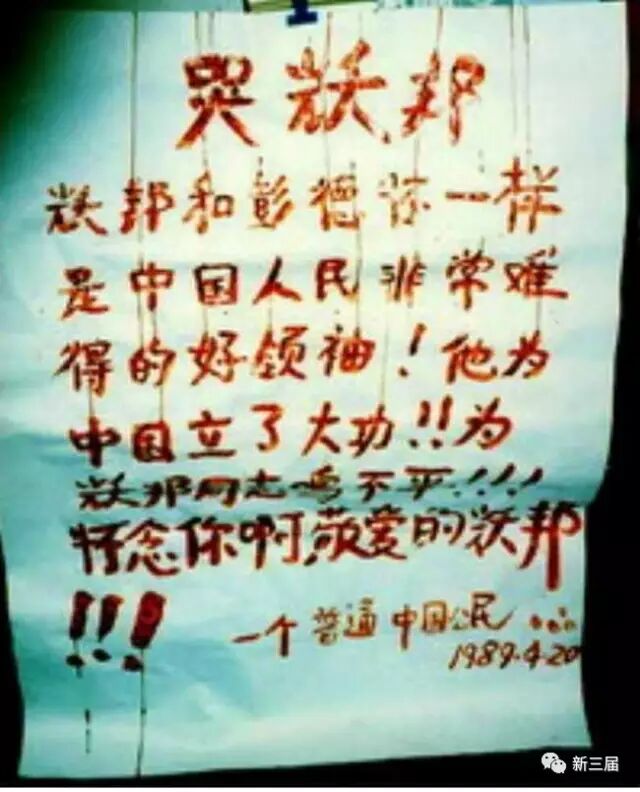 哭耀邦
耀邦和彭德怀一样
是中国人民非常难
得的好领袖！他为
中国立了大功!!为
耀邦同志鸣不平!!!!
怀念你啊,敬爱的耀邦
!!!
一个普通中国公民……
1989.4.20
新三届